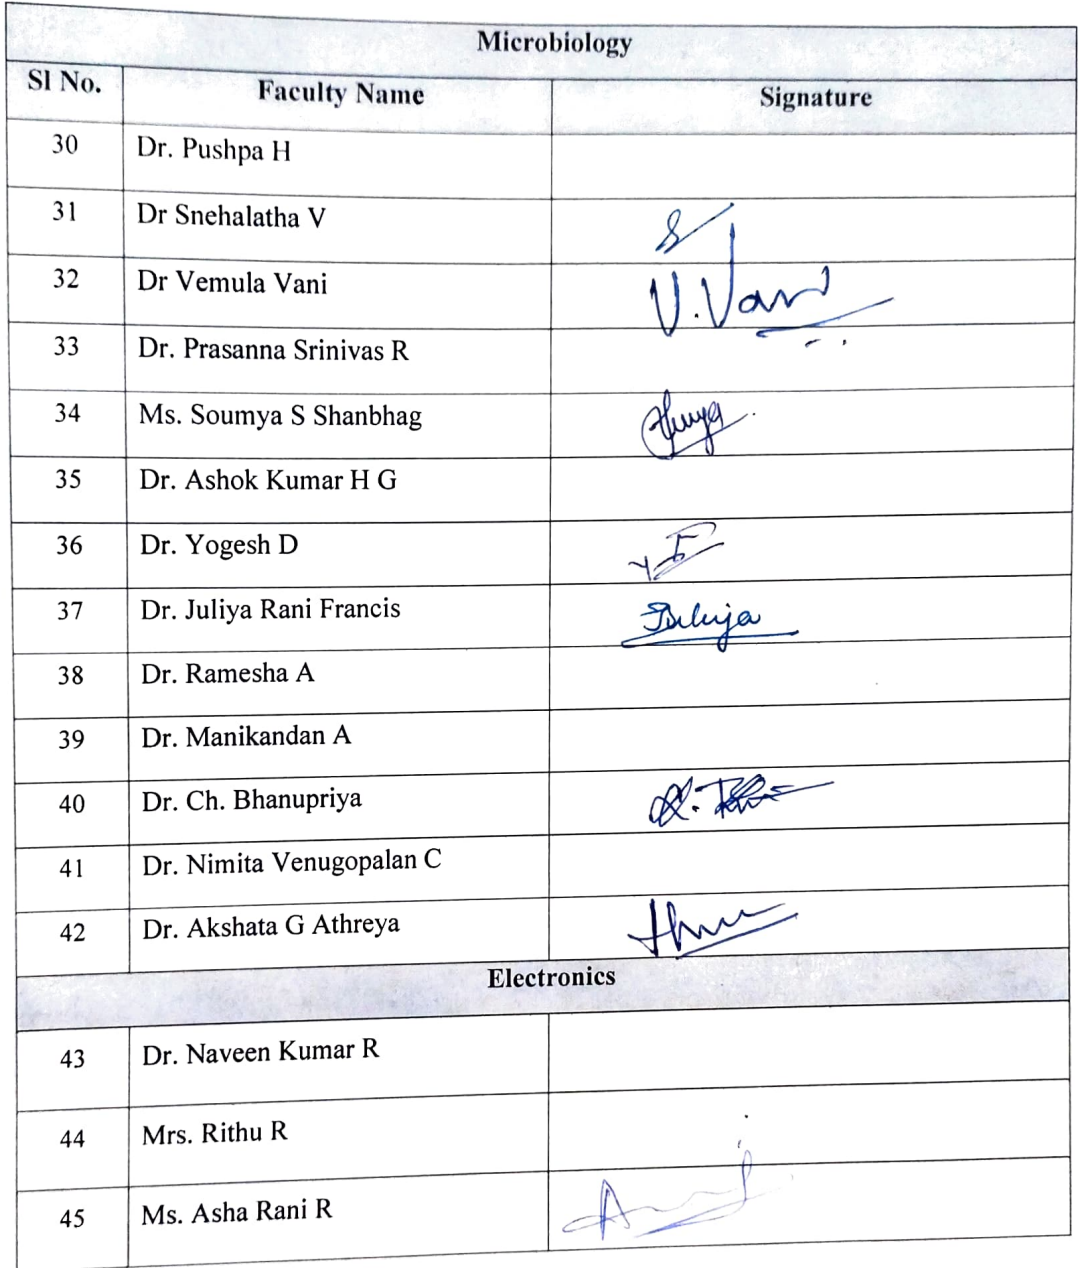 Microbiology
Sl No. Faculty Name Signature
30 Dr. Pushpa H
31 Dr Snehalatha V
32 Dr Vemula Vani V.Vani
33 Dr. Prasanna Srinivas R
34 Ms. Soumya S Shanbhag
35 Dr. Ashok Kumar H G
36 Dr. Yogesh D
37 Dr. Juliya Rani Francis Juliya
38 Dr. Ramesha A
39 Dr. Manikandan A
40 Dr. Ch. Bhanupriya
41 Dr. Nimita Venugopalan C
42 Dr. Akshata G Athreya
Electronics
43 Dr. Naveen Kumar R
44 Mrs. Rithu R
45 Ms. Asha Rani R